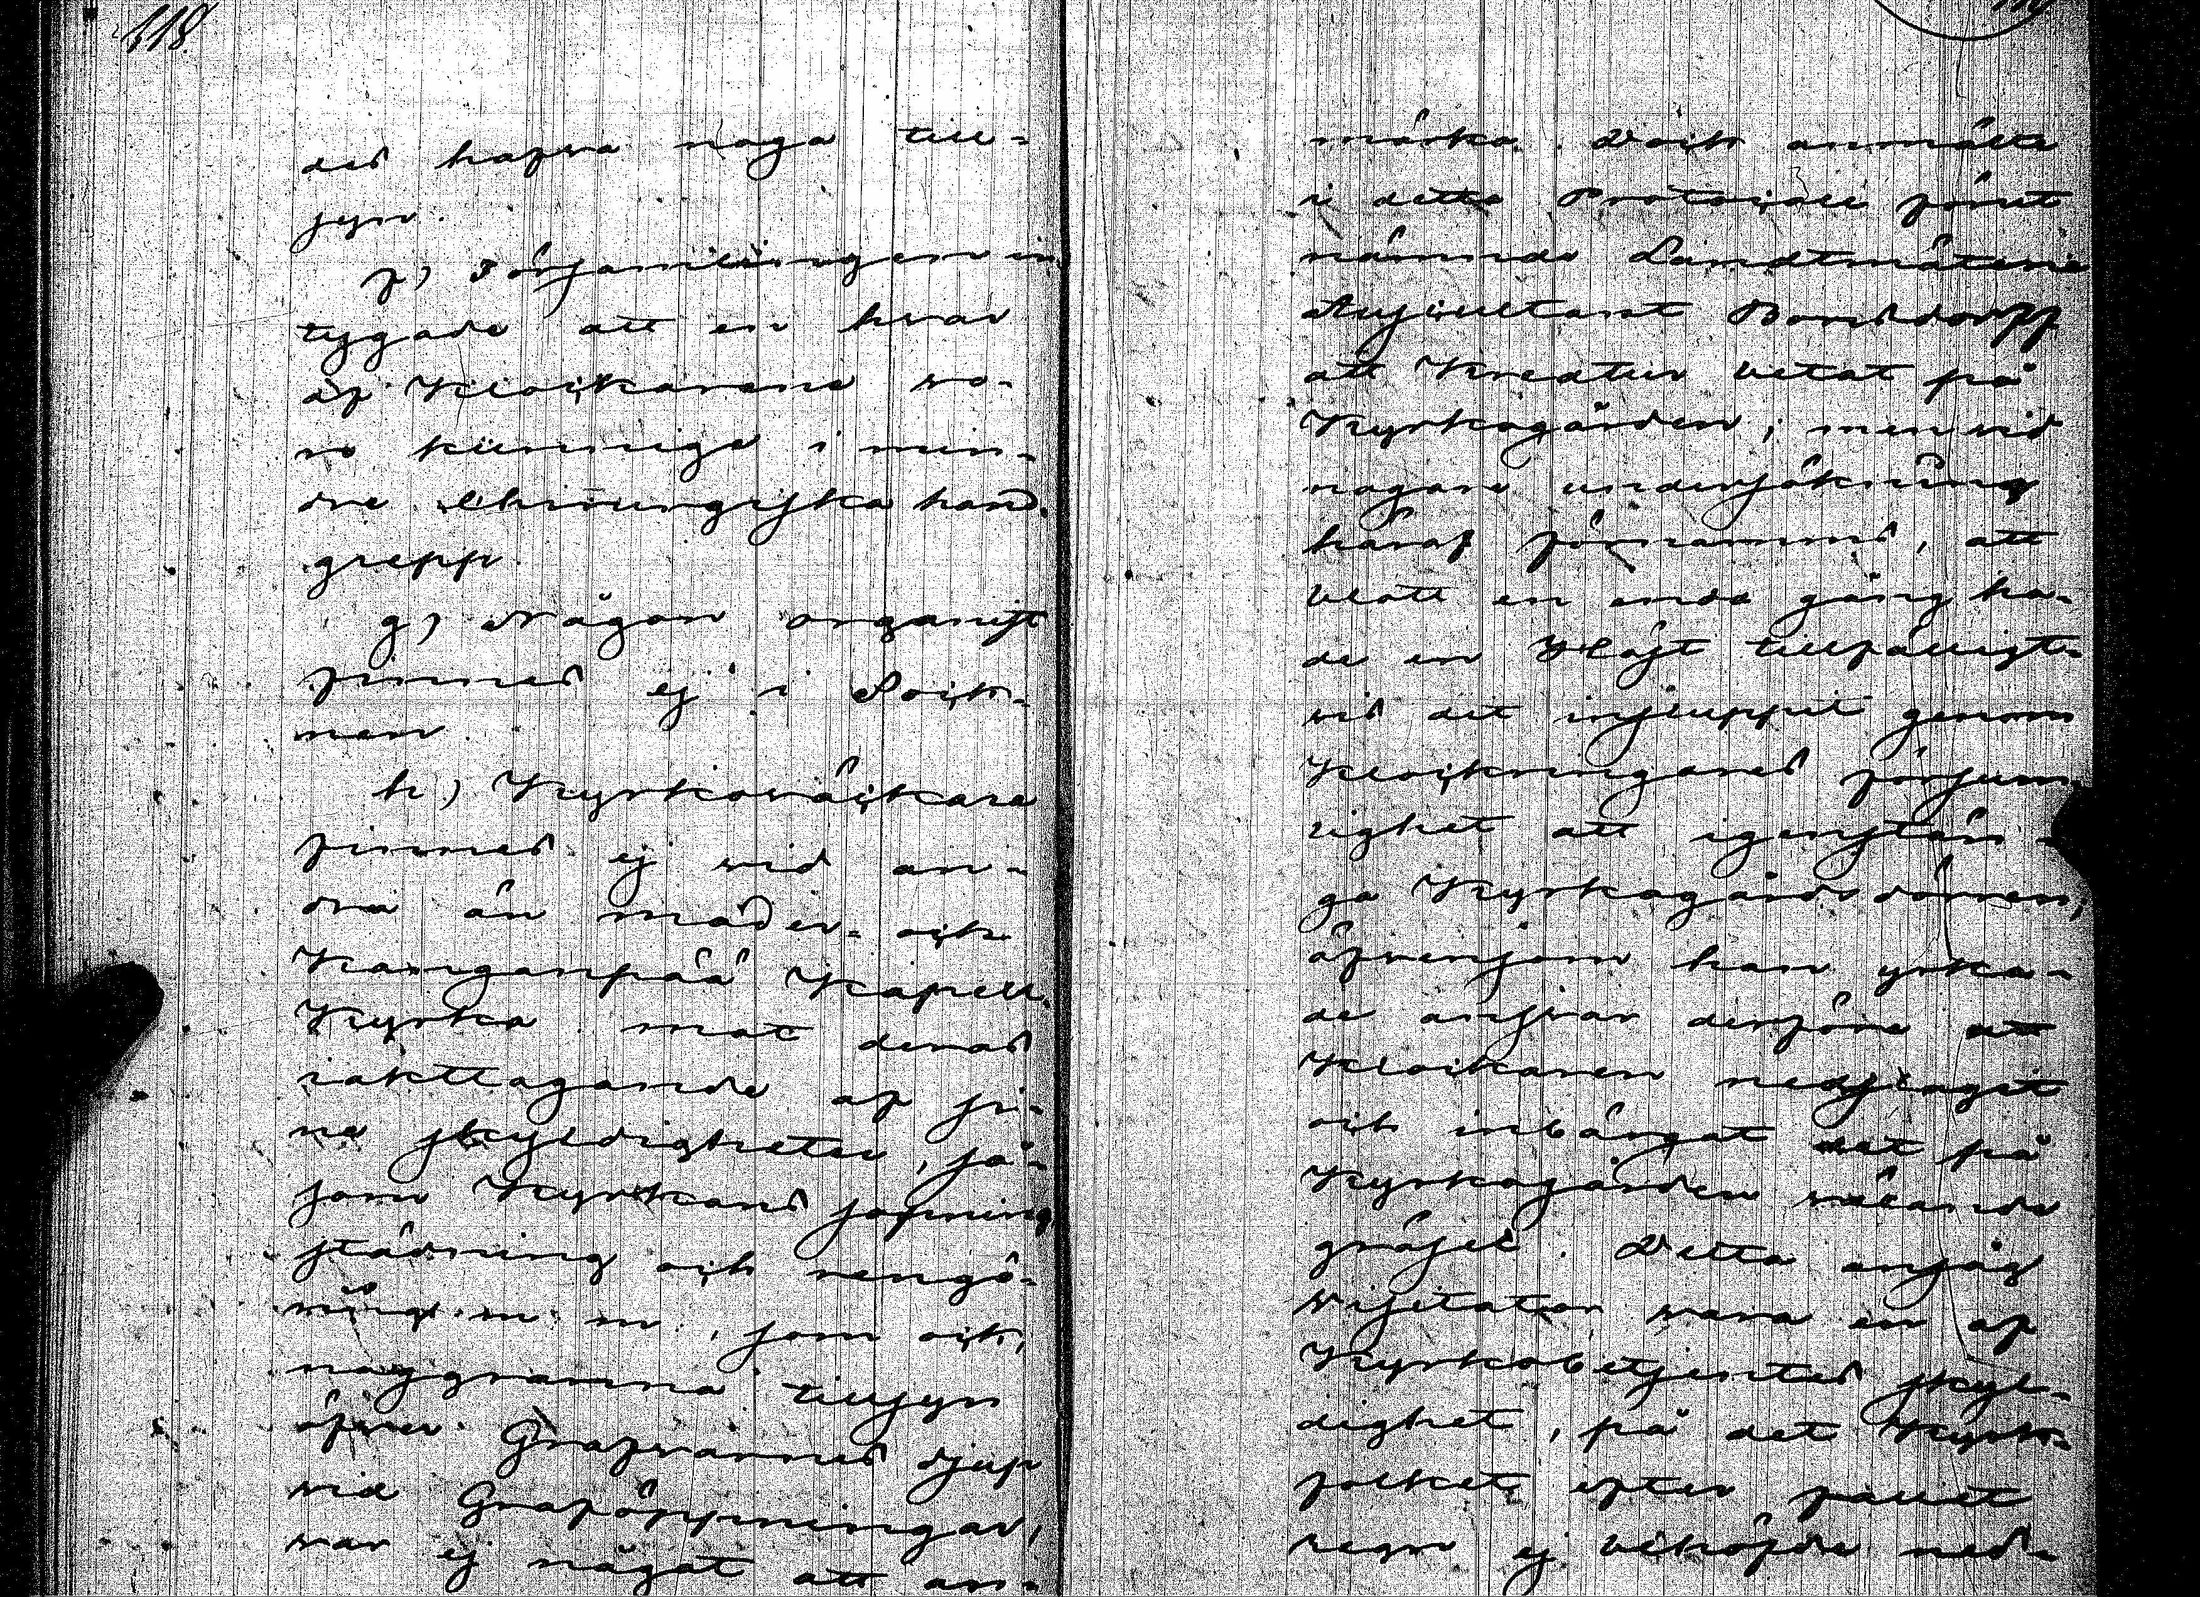 118
des hafva noga till-
syn.
f) Församlingen in-
tygade att en hvar
af Klockarena vo-
ro kunnige i min-
dre Chirurgiska hand-
grepp.
g) Någon organist
finnes ej i Sock-
nen.
h) Kyrkoväcktare
finnes ej vid an-
dra än moder- och
Kanganpää Kapell
Kyrka mot deras
iakttagande af si-
na skyldigheter, så-
som Kyrkans sopning
städning och rengö-
ring m m, som ock,
noggranna tillsyn
öfver Grafvarnes djup
vid Graföppningar,
var ej något att an-
119
märka. Dock anmälte
i detta Protocoll förut
nämnde Landtmäterie
Auscultant Bonsdorff
att Kreatur betat på
Kyrkogården; men vid
nogare undersökning
häraf förnamms, att
blott en enda gång ha-
de en Häst tillfälligt-
vis dit insluppit genom
Klockringares försum
lighet att igenstän-
ga Kyrkogårdsdörren,
äfvensom han yrka-
de ansvar derföre att
Klockaren nedslagit
och inbärgat det på
Kyrkogården växande
gräset. Detta ansåg
Visitator vara en af
Kyrkobetjentes skyl-
dighet, på det Kyrk-
folket efter fallet
regn ej behöfde ned-